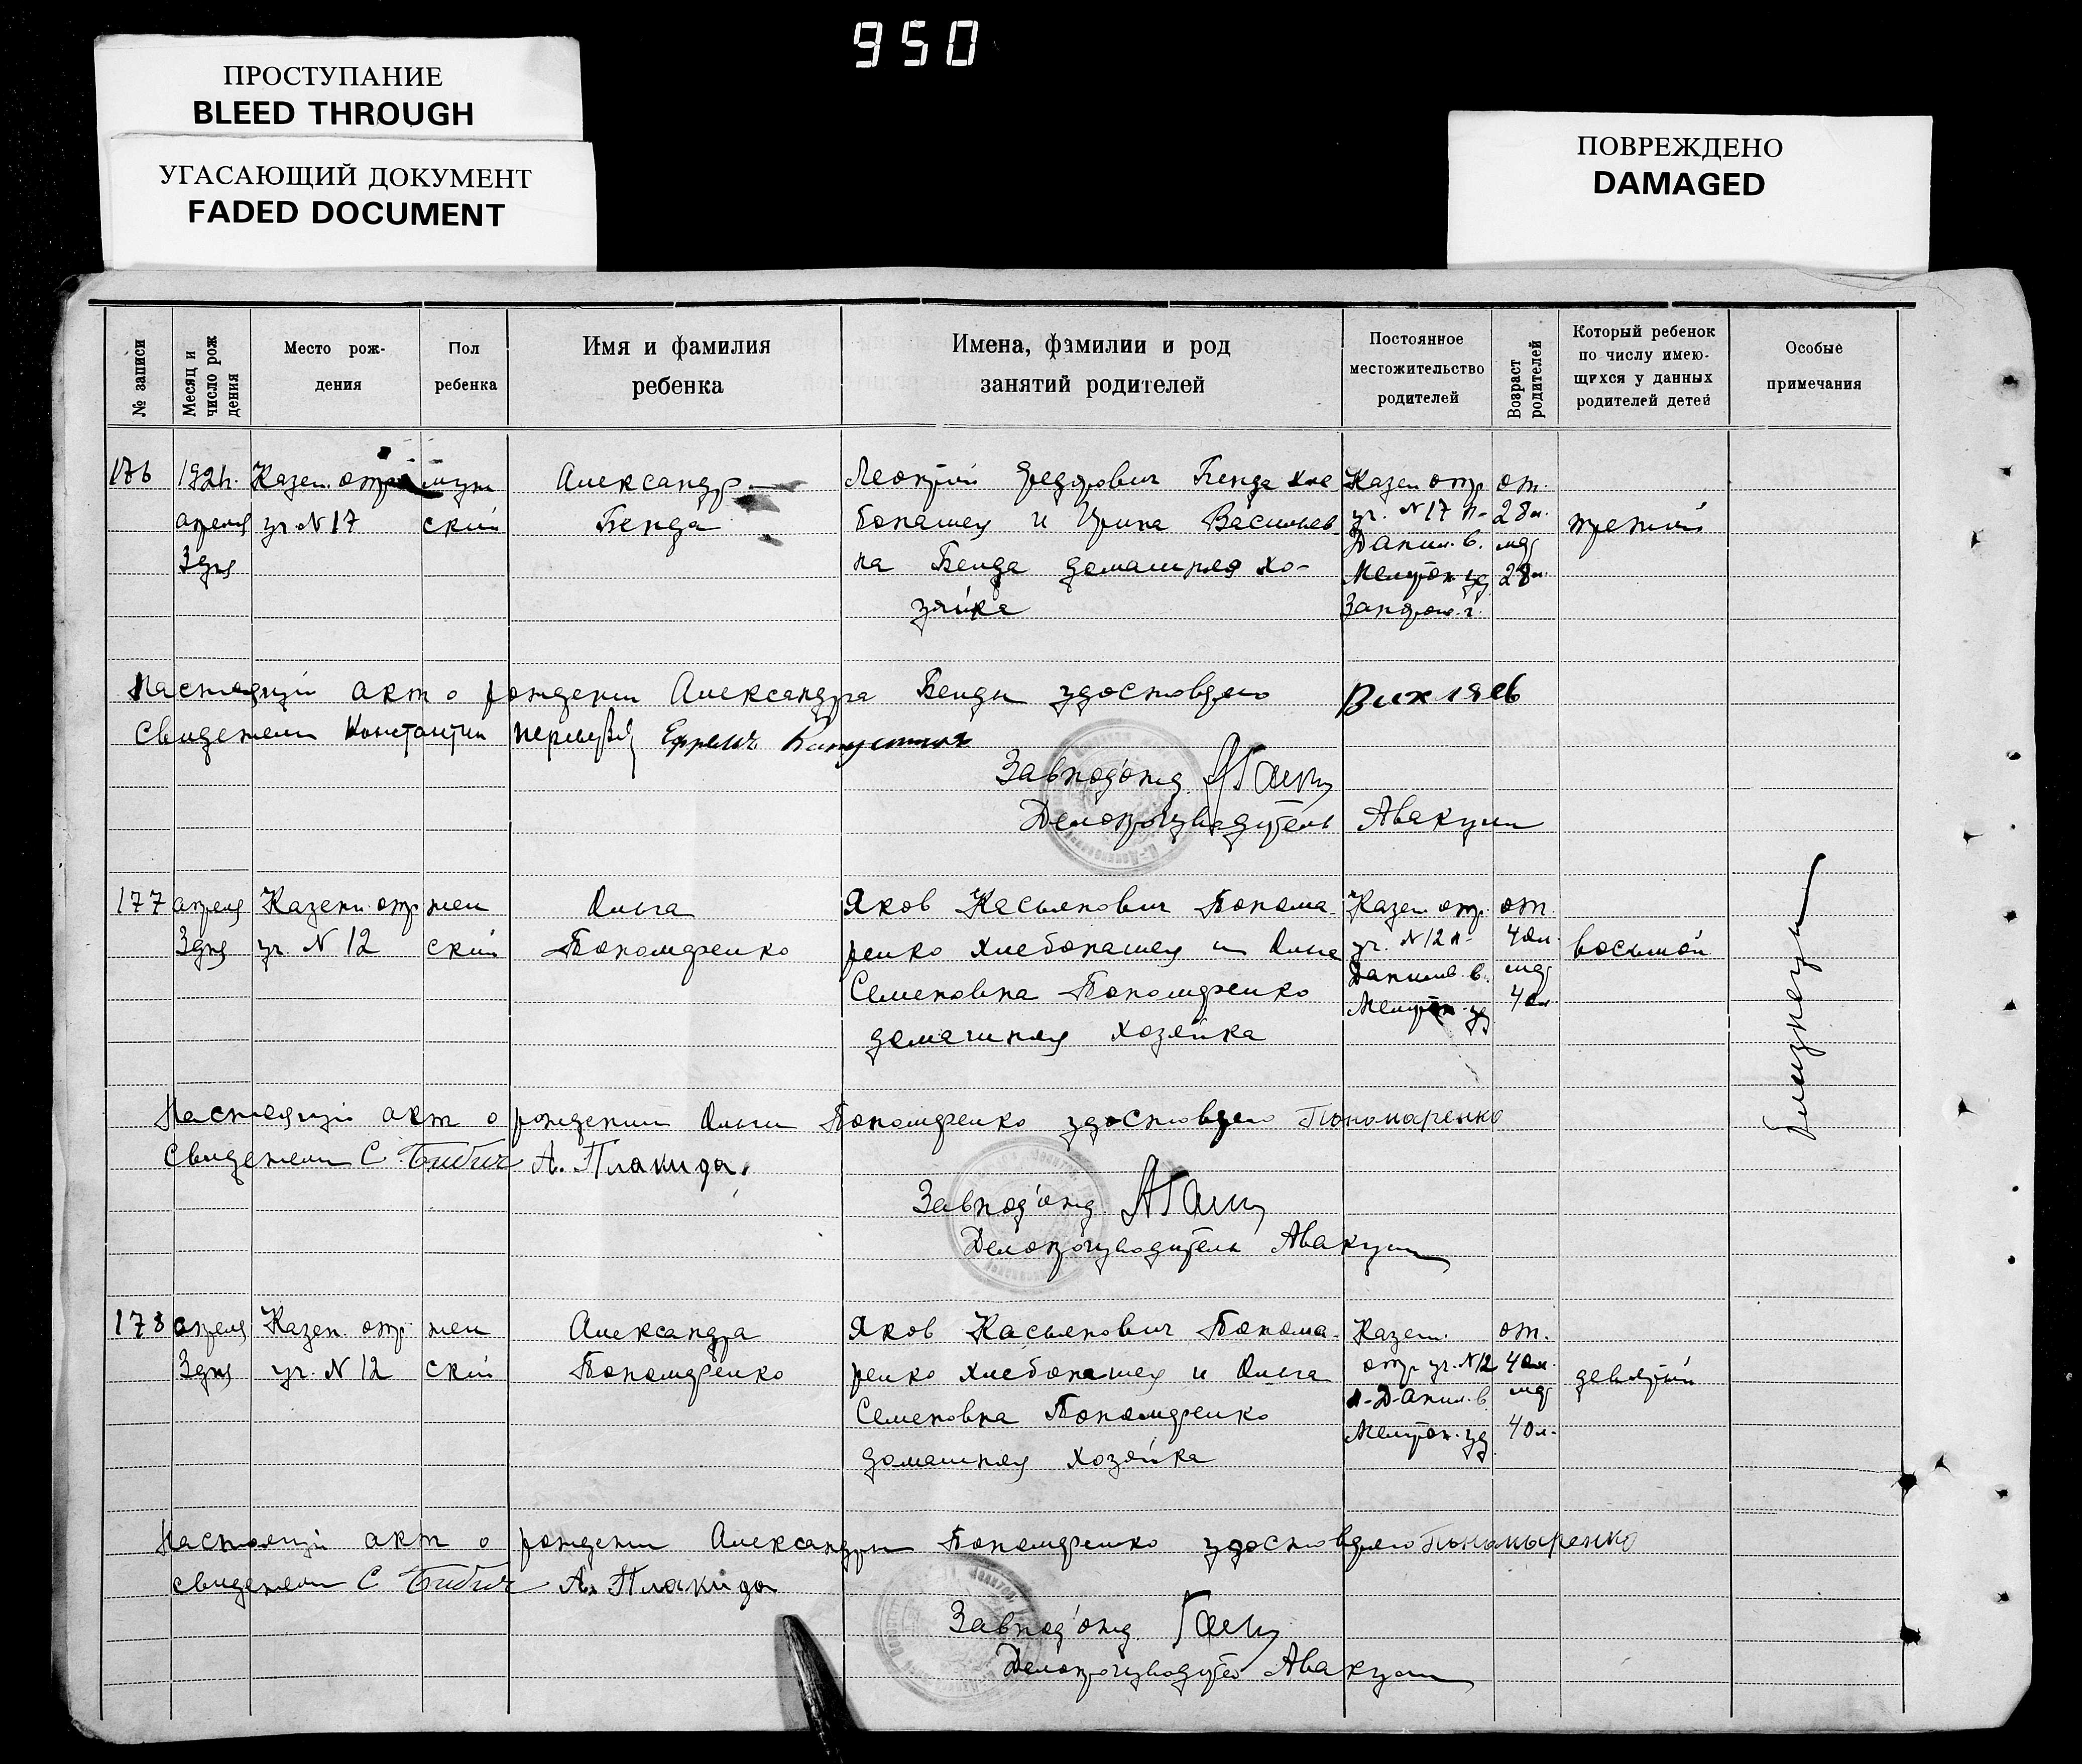 950
ПРОСТУПАНИЕ
BLEED THROUGH
УГАСАЮЩИЙ ДОКУМЕНТ
FADED DOCUMENT
ПОВРЕЖДЕНО
DAMAGED
№ записи
Месяц и число рождения
Место рож-
дения
Пол
ребенка
Имя и фамилия
ребенка
Имена, фамилии и род
занятий родителей
Постоянное
местожительство
родителей
Возраст
родителей
Который ребенок
по числу имею-
щихся у данных
родителей детей
Особые
примечания
176
апреля
3 дня
Казен. отр
уч. N 17
муж
ский
Александр
Бенда
Леонтий Федорович Бенда хле
бопашец и Ирина Васильев
на Бенда домашняя хо-
зяйка
Казен отр
уч. N 17 Н-
Данил. в.
Мелитоп. уд
от.
28 л.
мат
28 л.
третий
Настоящий акт о рождении Александра Бенды удостовдено
Свидетели Константин Ефремъ
Завподотд.
Делопроизводитель Авакум
177
апреля
3 дня
Казенн. отр
уч. N 12
жен
ский
Ольга
Пономаренко
Яков Касьянович Понома-
ренко хлебопашец и Ольга
Семеновна Пономаренко
домашняя хозяйка
Казен. отр.
уч. N 12 Н-
Данил в.
Мелитоп. уд
от.
40 л.
мат
40 л
восьмой
близнецы
Настоящий акт о рождении Ольги Пономаренко удостовдено Пономаренко
Свидетели С. Бибич А. Плакида.
Завподотд.
Делопроизводитель Авакум
178
апреля
3 дня
Казен. отр
уч. N 12
жен
ский
Александра
Пономаренко
Яков Касьянович Понома-
ренко хлебопашец и Ольга
Семеновна Пономаренко
домашняя хозяйка
Казен.
отр уч. N 12
Н-Данил. в
Мелитоп. уд.
от.
40 л.
мат
40 л.
девятый
Настоящий акт о рождении Александры Пономаренко удостовдено Пономыренко
свидетели С Бибич А. Плакида
Завподотд.
Авакум